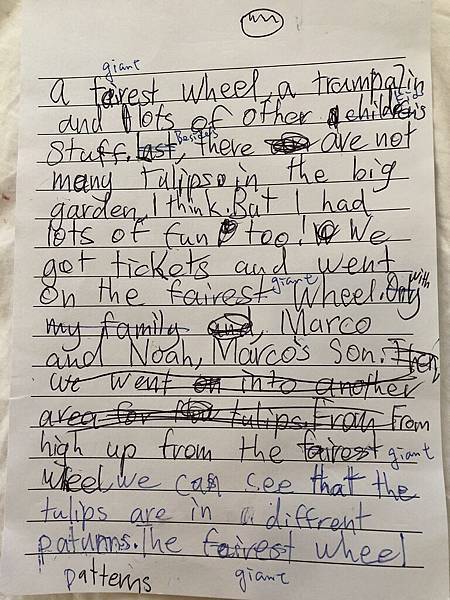 giant
a fairest wheel, a trampalin
and lots of other childens
Stuff. Last, Besides, there are not
many tulips in the big
garden, I think. But I had
lots of fun too! We
got tickets and went
on the fairest giant wheel. Only with
my family and, Marco
and Noah, Marco's Son. Then
we went on into another
area for tulips. From From
high up from the fairest giant
wheel we can see that the
tulips are in diffrent
paturns. The fairest wheel
patterns giant